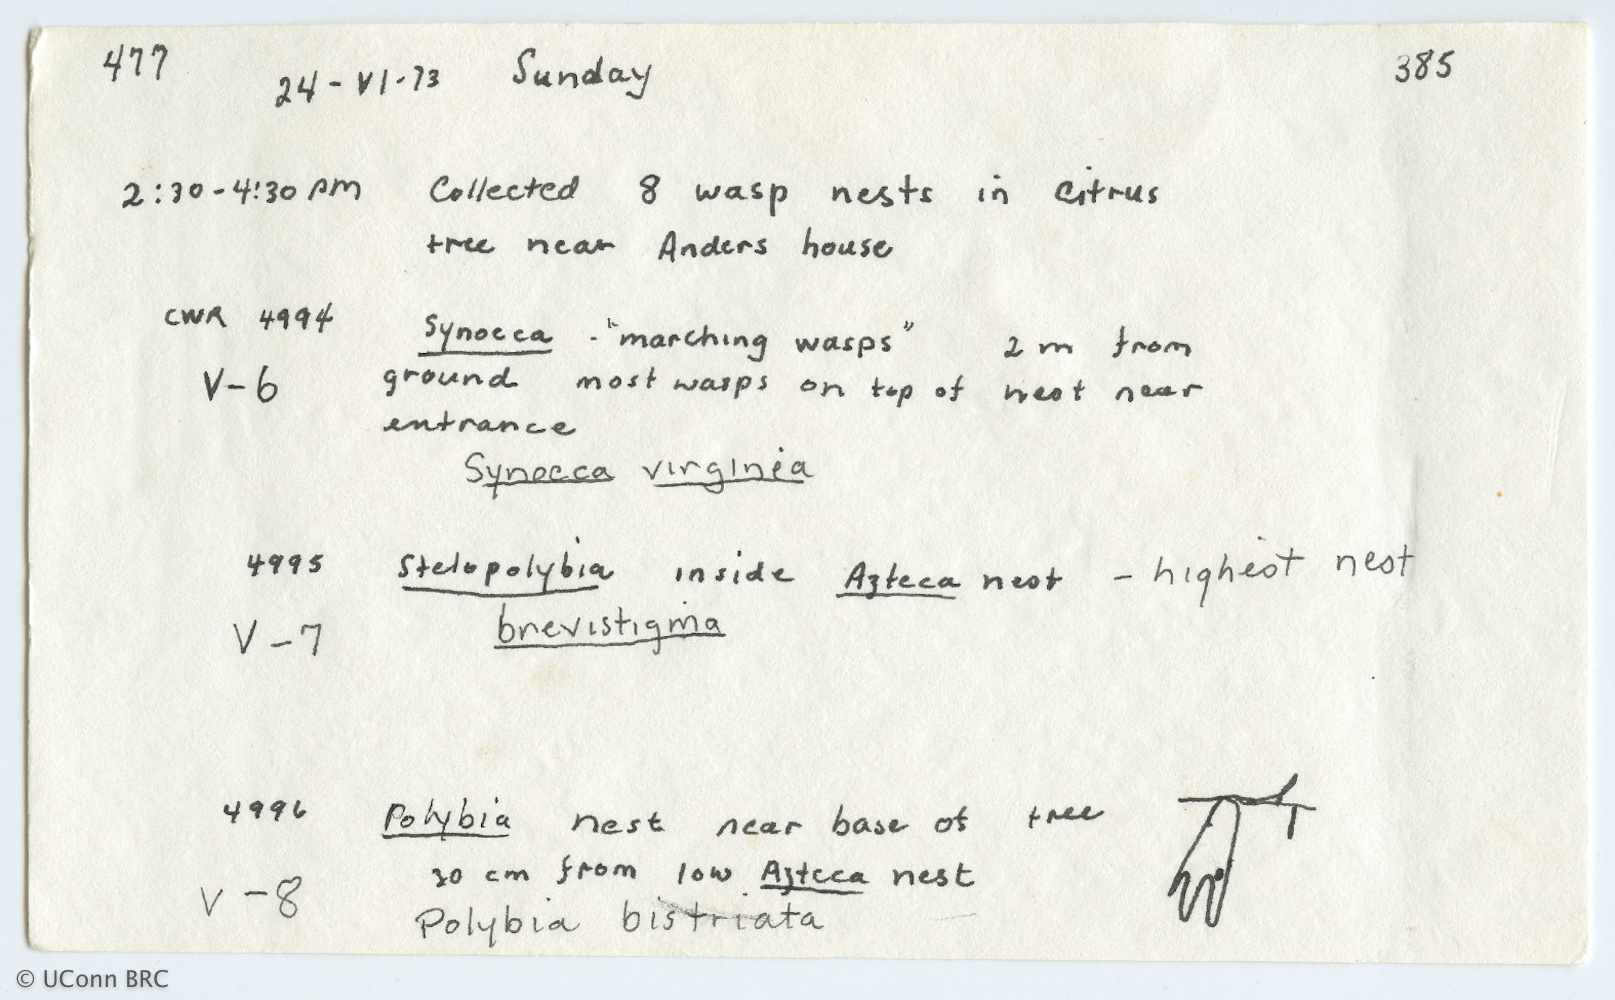 477 24-VI-73 Sunday 385
2:30-4:30 PM Collected 8 wasp nests in citrus
tree near Anders house
CWR 4994 Synoeca - "marching wasps" 2 m from
V-6 ground most wasps on top of nest near
entrance
Synoeca virginea
4995 Stelopolybia inside Azteca nest - highest nest
V-7 brevistigma
4996 Polybia nest near base of tree
30 cm from low Azteca nest
V-8 Polybia bistriata
© UConn BRC